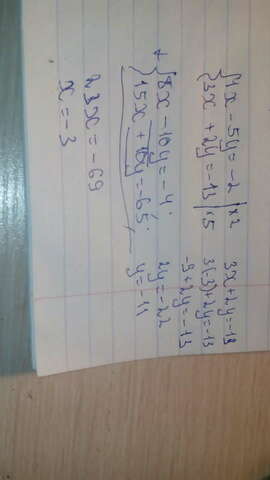 4x - 5y = -2 | x 2
3x + 2y = -13 | x 5
+ 8x - 10y = -4;
15x + 10y = -65;
23x = -69
x = -3
3x + 2y = -13
3·(-3) + 2y = -13
-9 + 2y = -13
2y = -22
y = -11